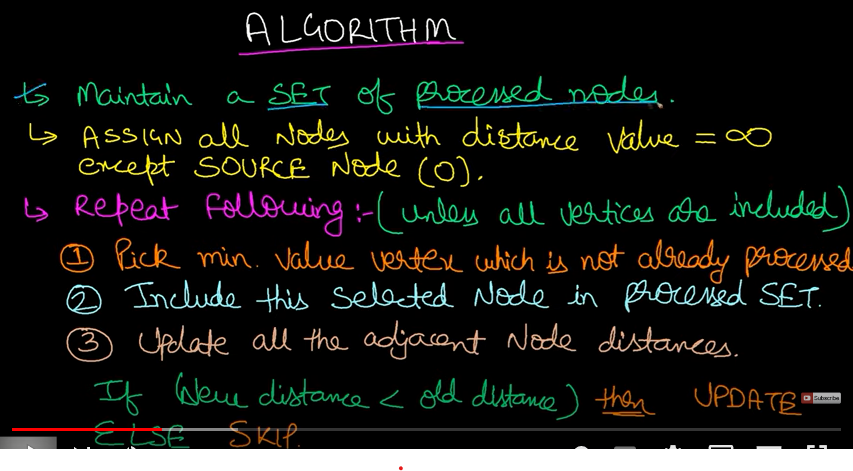 ALGORITHM
↳ Maintain a SET of processed nodes.
↳ ASSIGN all Nodes with distance value = ∞
except SOURCE Node (0).
↳ Repeat Following:- (unless all vertices are included)
① Pick min. value vertex which is not already processed
② Include this selected Node in processed SET.
③ Update all the adjacent Node distances.
If (New distance < old distance) then UPDATE
Subscribe
ELSE SKIP.